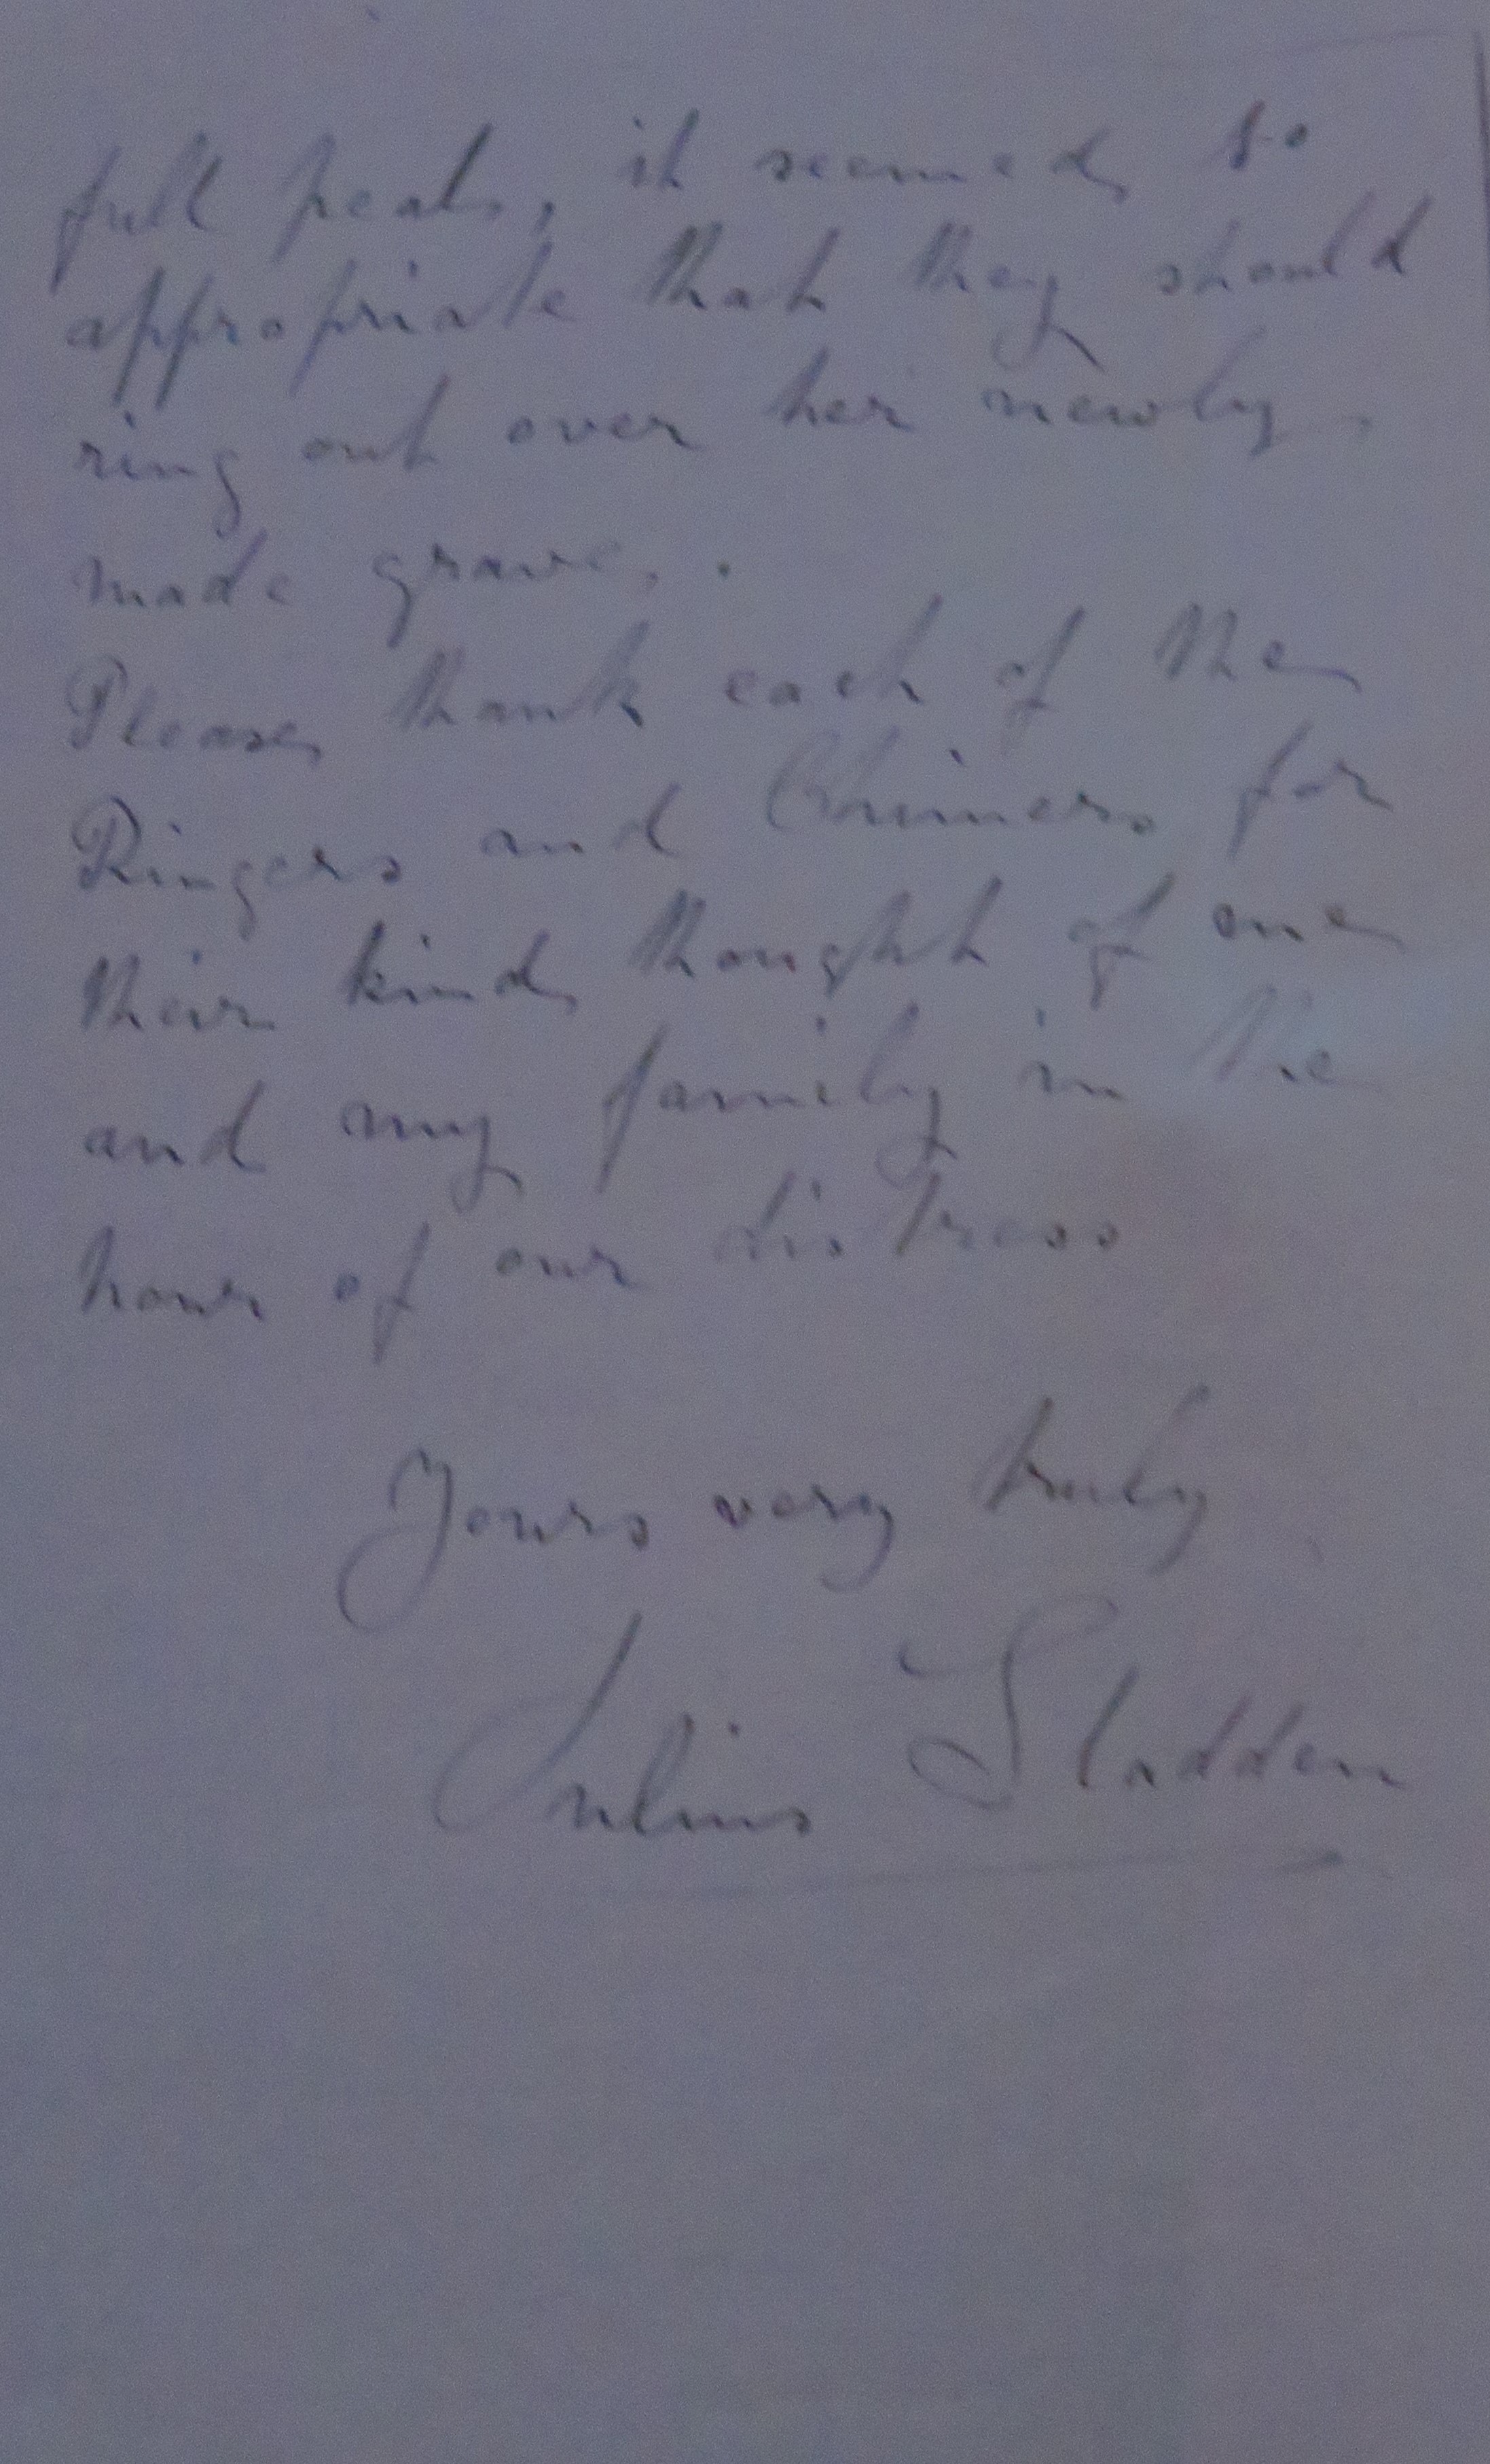 full peal, it seemed so
appropriate that they should
ring out over her newly
made grave.
Please thank each of the
Ringers and Chimers for
their kind thought of me
and my family in the
hour of our distress
Yours very truly
Julius Sladden